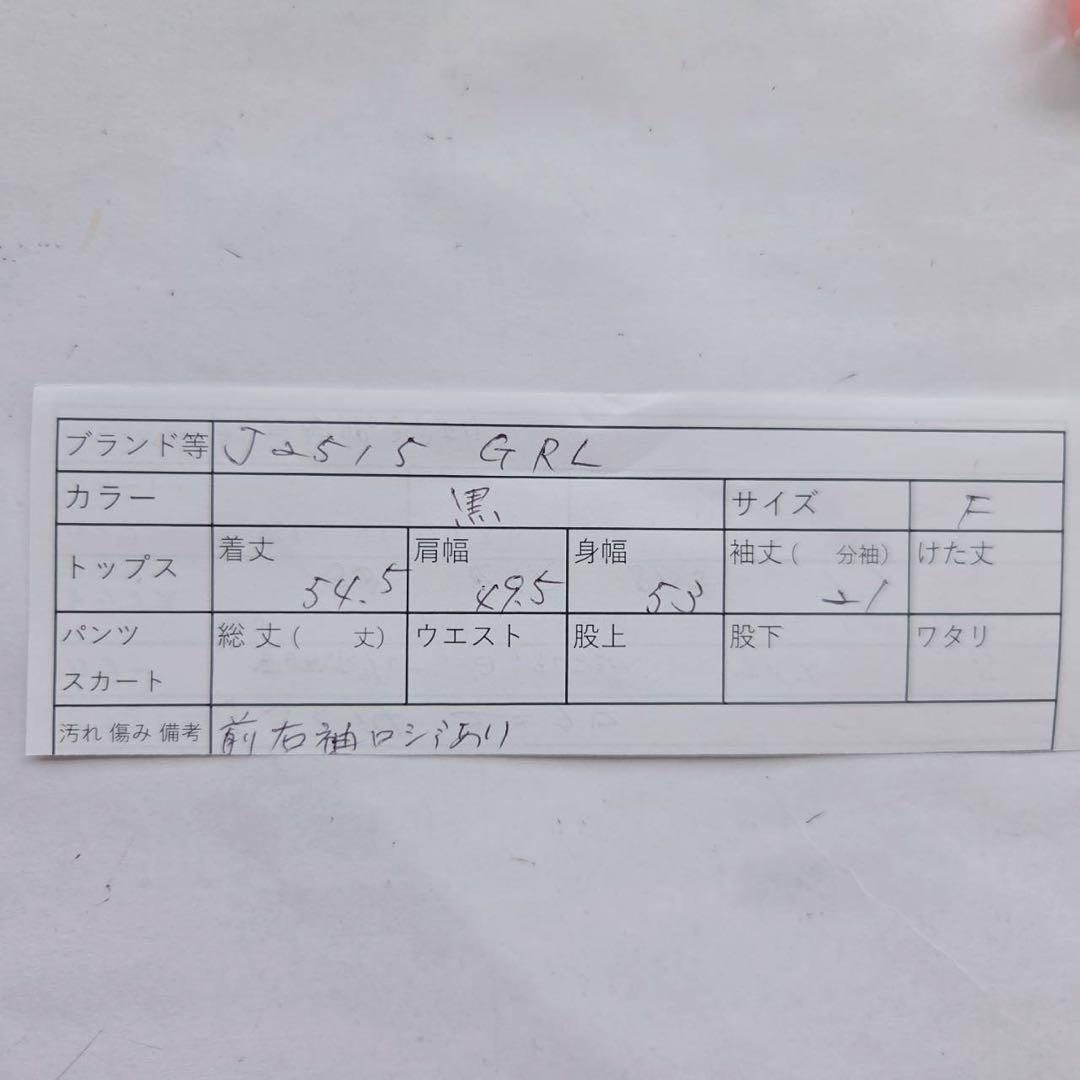 ブランド等 J2515 GRL
カラー 黒 サイズ F
トップス 着丈 54.5 肩幅 49.5 身幅 53 袖丈( 分袖) 21 けた丈
パンツ スカート 総丈( 丈) ウエスト 股上 股下 ワタリ
汚れ 傷み 備考 前右袖ロゴあり